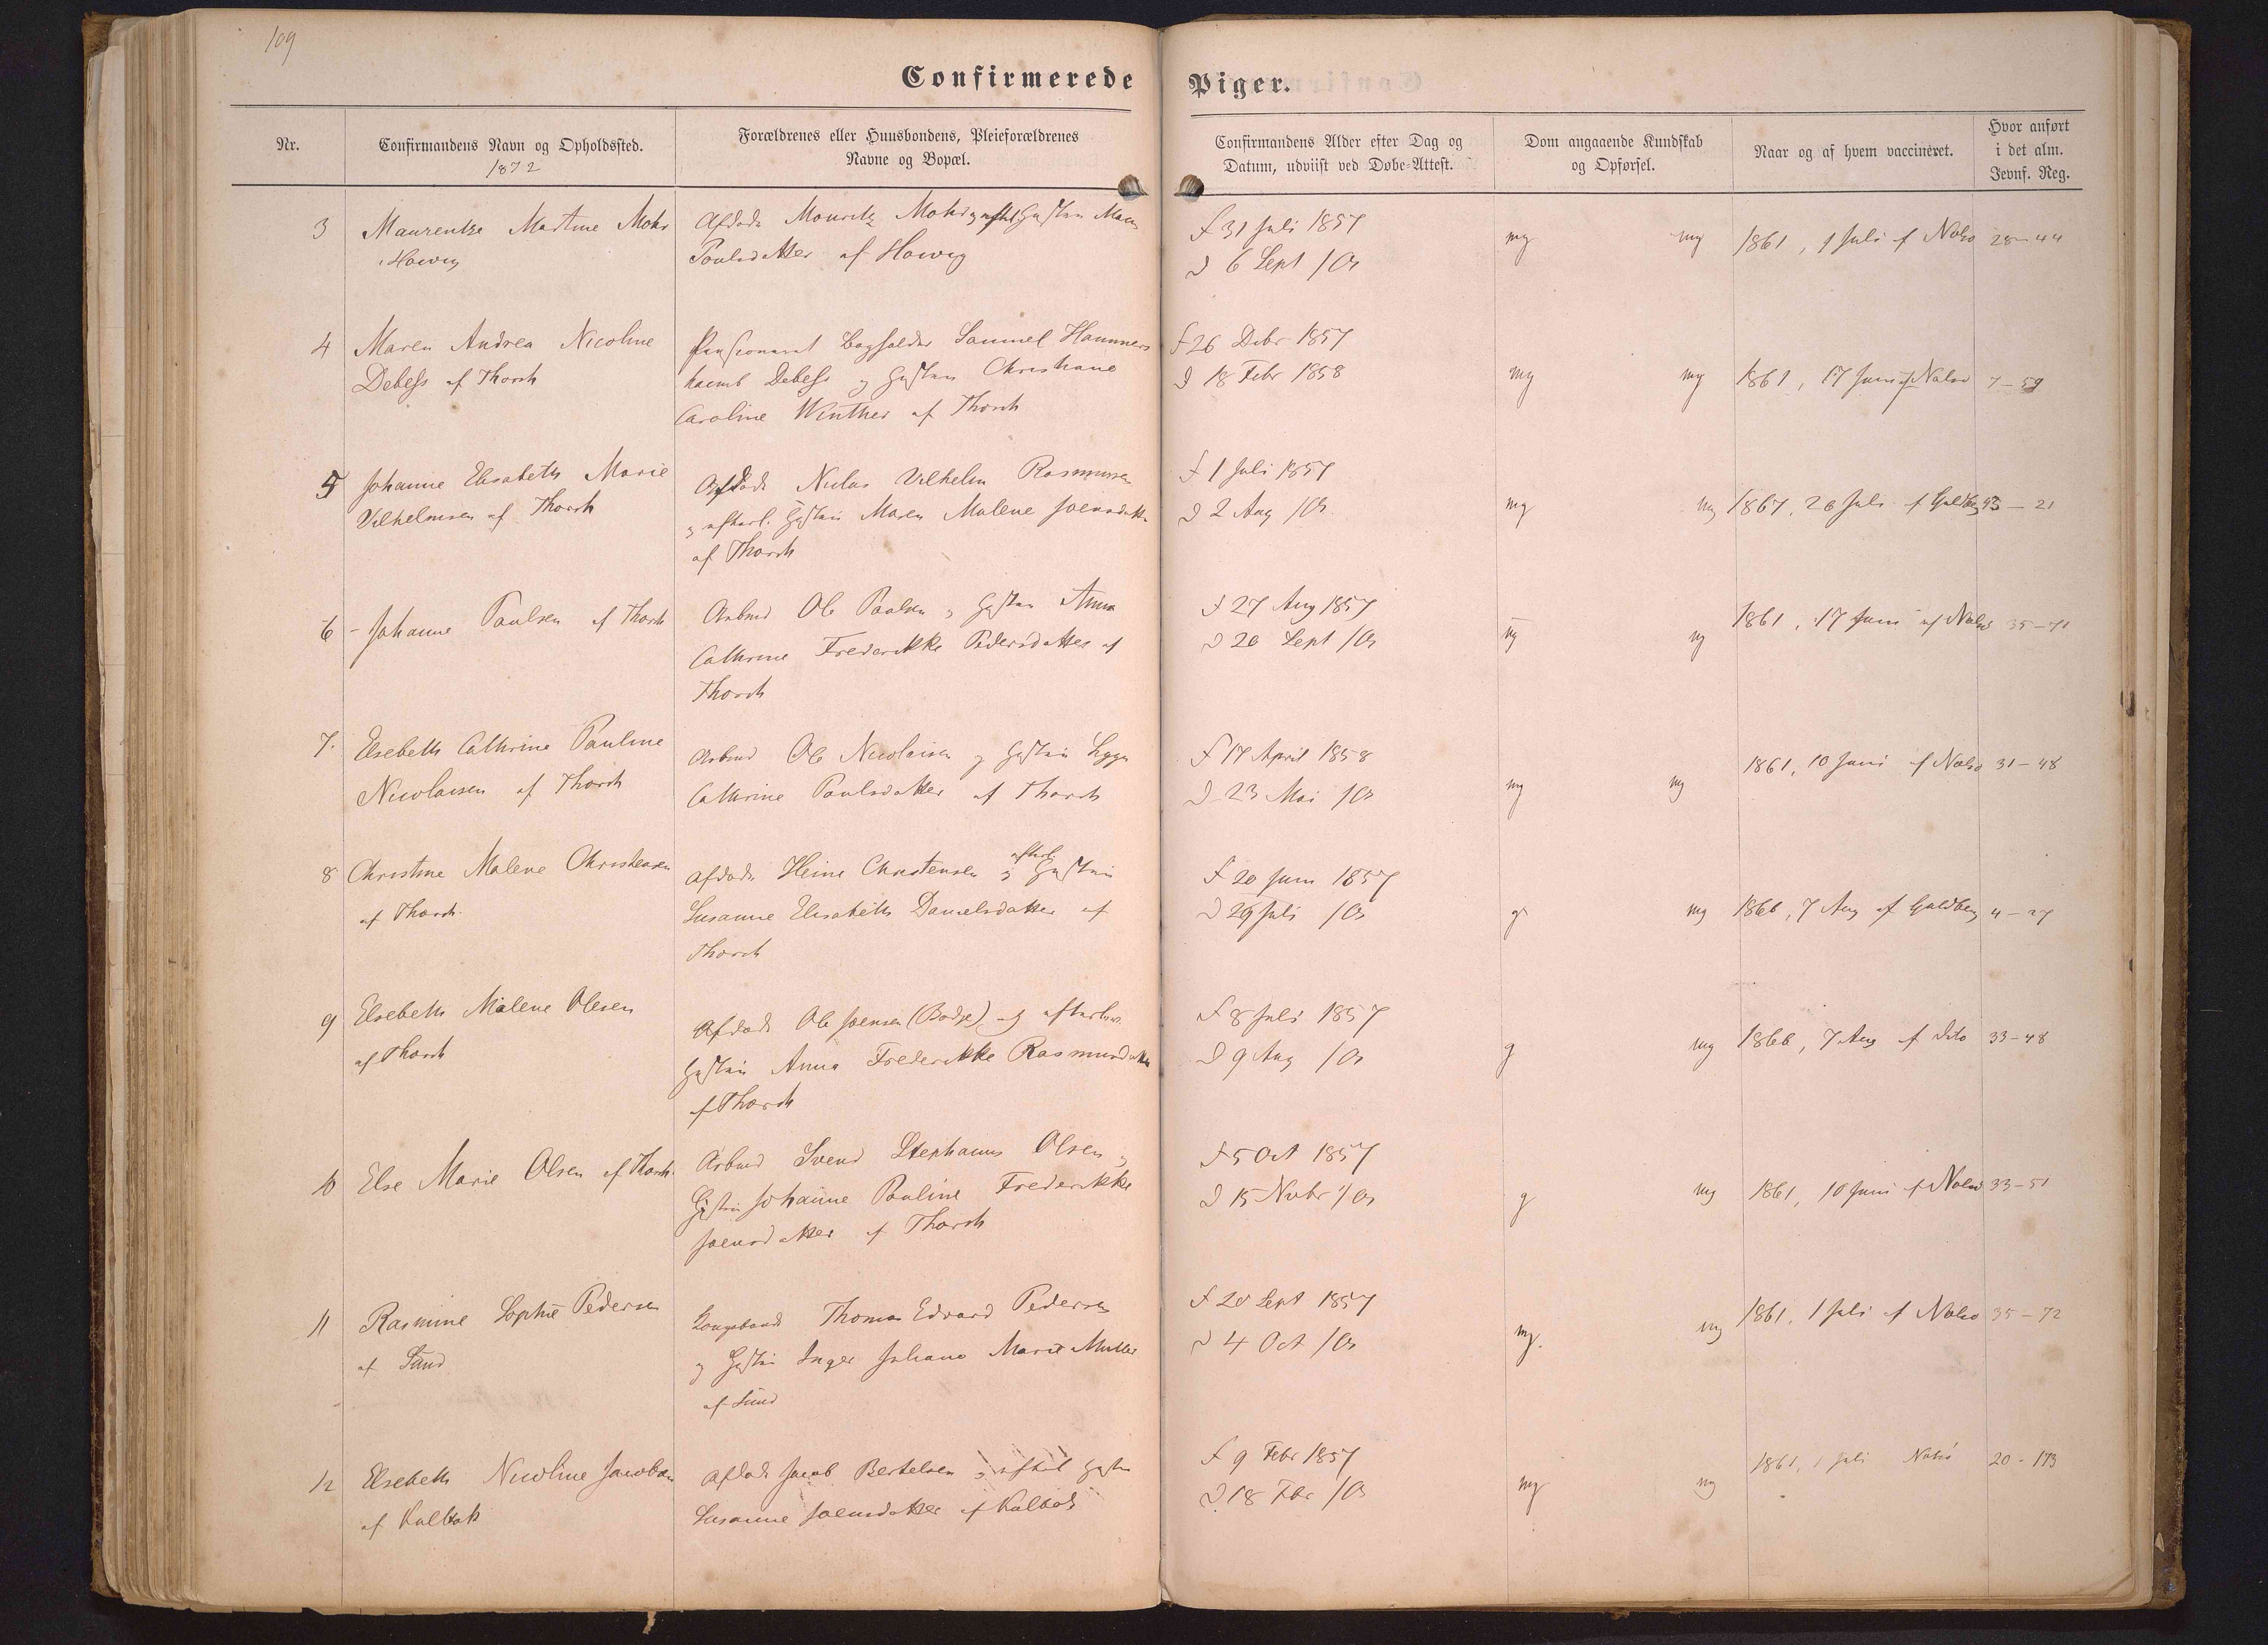 109
Confirmerede Piger.
Nr.
Confirmandens Navn og Opholdssted.
1872
Forældrenes eller Huusbondens, Pleieforældrenes
Navne og Bopæl.
Confirmandens Alder efter Dag og
Datum, udviist ved Døbe-Attest.
Dom angaaende Kundskab
og Opførsel.
Naar og af hvem vaccineret.
Hvor anført
i det alm.
Jevnf. Reg.
3 Maurentze Martine Mohr
Hoivig
Afdøde Mouritz Mohr og Hustru Maren
Poulsdatter af Hoivig
f 31 Juli 1857
D 6 Sept
mg mg
1861, 1 Juli af Nolsø 28-44
4 Maren Andrea Nicoline
Debess af Thorsh
Pensioneret Bogholder Samuel Hammers
haimb Debess og Hustru Christiane
Caroline Winther af Thorsh
f 26 Debr 1857
D 18 Febr 1858
mg mg
1861, 17 Juni af Nolsø 7-59
5 Johanne Elisabeth Marie
Vilhelmsen af Thorsh
Afdøde Niclas Vilhelm Rasmussen
og efterl. Hustru Maren Malene Joensdatter
af Thorsh
f 1 Juli 1857
D 2 Aug
mg mg
1867, 26 Juli af Goldberg 43-21
6 - Johanne Paulsen af Thorsh
Arbmd Ole Paulsen og Hustru Anna
Cathrine Frederikke Pedersdatter af
Thorsh
f 27 Aug 1857
D 20 Sept
ug ug
1861, 17 Juni af Nolsø 35-71
7. Elsebeth Cathrine Pauline
Nicolaisen af Thorsh
Arbmd Ole Nicolaisen og Hustru Sigga
Cathrine Poulsdatter af Thorsh
f 17 April 1858
D 23 Mai
mg mg
1861, 10 Juni af Nolsø 31-48
8 Christine Malene Christensen
af Thorsh.
Afdøde Heine Christensen og efterl. Hustru
Susanne Elisabeth Danielsdatter af
Thorsh
f 20 Juni 1857
D 26 Juli
g mg
1866, 7 Aug af Goldberg 4-27
9 Elsebeth Malene Olesen
af Thorsh
Afdøde Ole Joensen (Bodge) og efterlev.
Hustru Anna Frederikke Rasmusdatter
af Thorsh
f 8 Juli 1857
D 9 Aug
g mg
1866, 7 Aug af Dito 33-48
10 Else Marie Olsen af Thorsh
Arbmd Svend Stephanus Olsen og
Hustru Johanne Pauline Frederikke
Joensdatter af Thorsh
f 5 Oct 1857
D 15 Novbr
g mg
1861, 10 Juni af Nolsø 33-51
11 Rasmine Sophie Pedersen
af Sund
Kongsbonde Thomas Edvard Pedersen
og Hustru Inger Johane Marie Müller
af Sund
f 20 Sept 1857
D 4 Oct
mg. mg
1861, 1 Juli af Nolsø 35-72
12 Elsebeth Nicoline Jacobsen
af Kalbak
Afdøde Jacob Bertelsen og efterl Hustru
Susanne Joensdatter af Kalbak
f 9 Febr 1857
D 18 Fbr
mg mg
1861, 1 Juli Nolsø 20-173